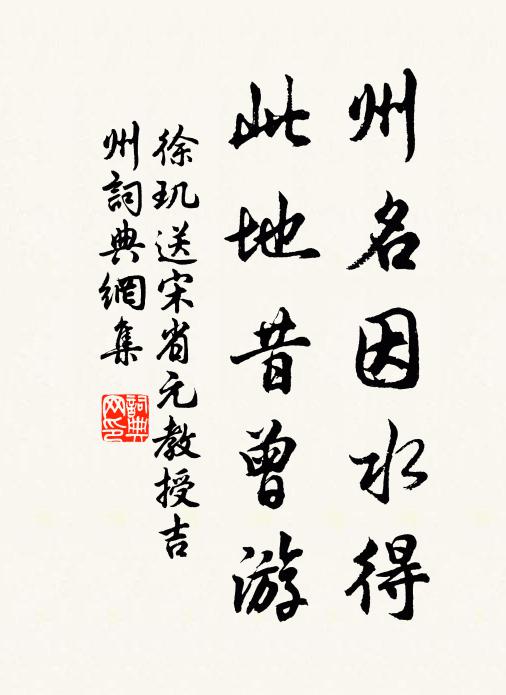 州名因水得
此地昔曾游
徐玑送宋省元教授吉
州詞典網集
詞典网印